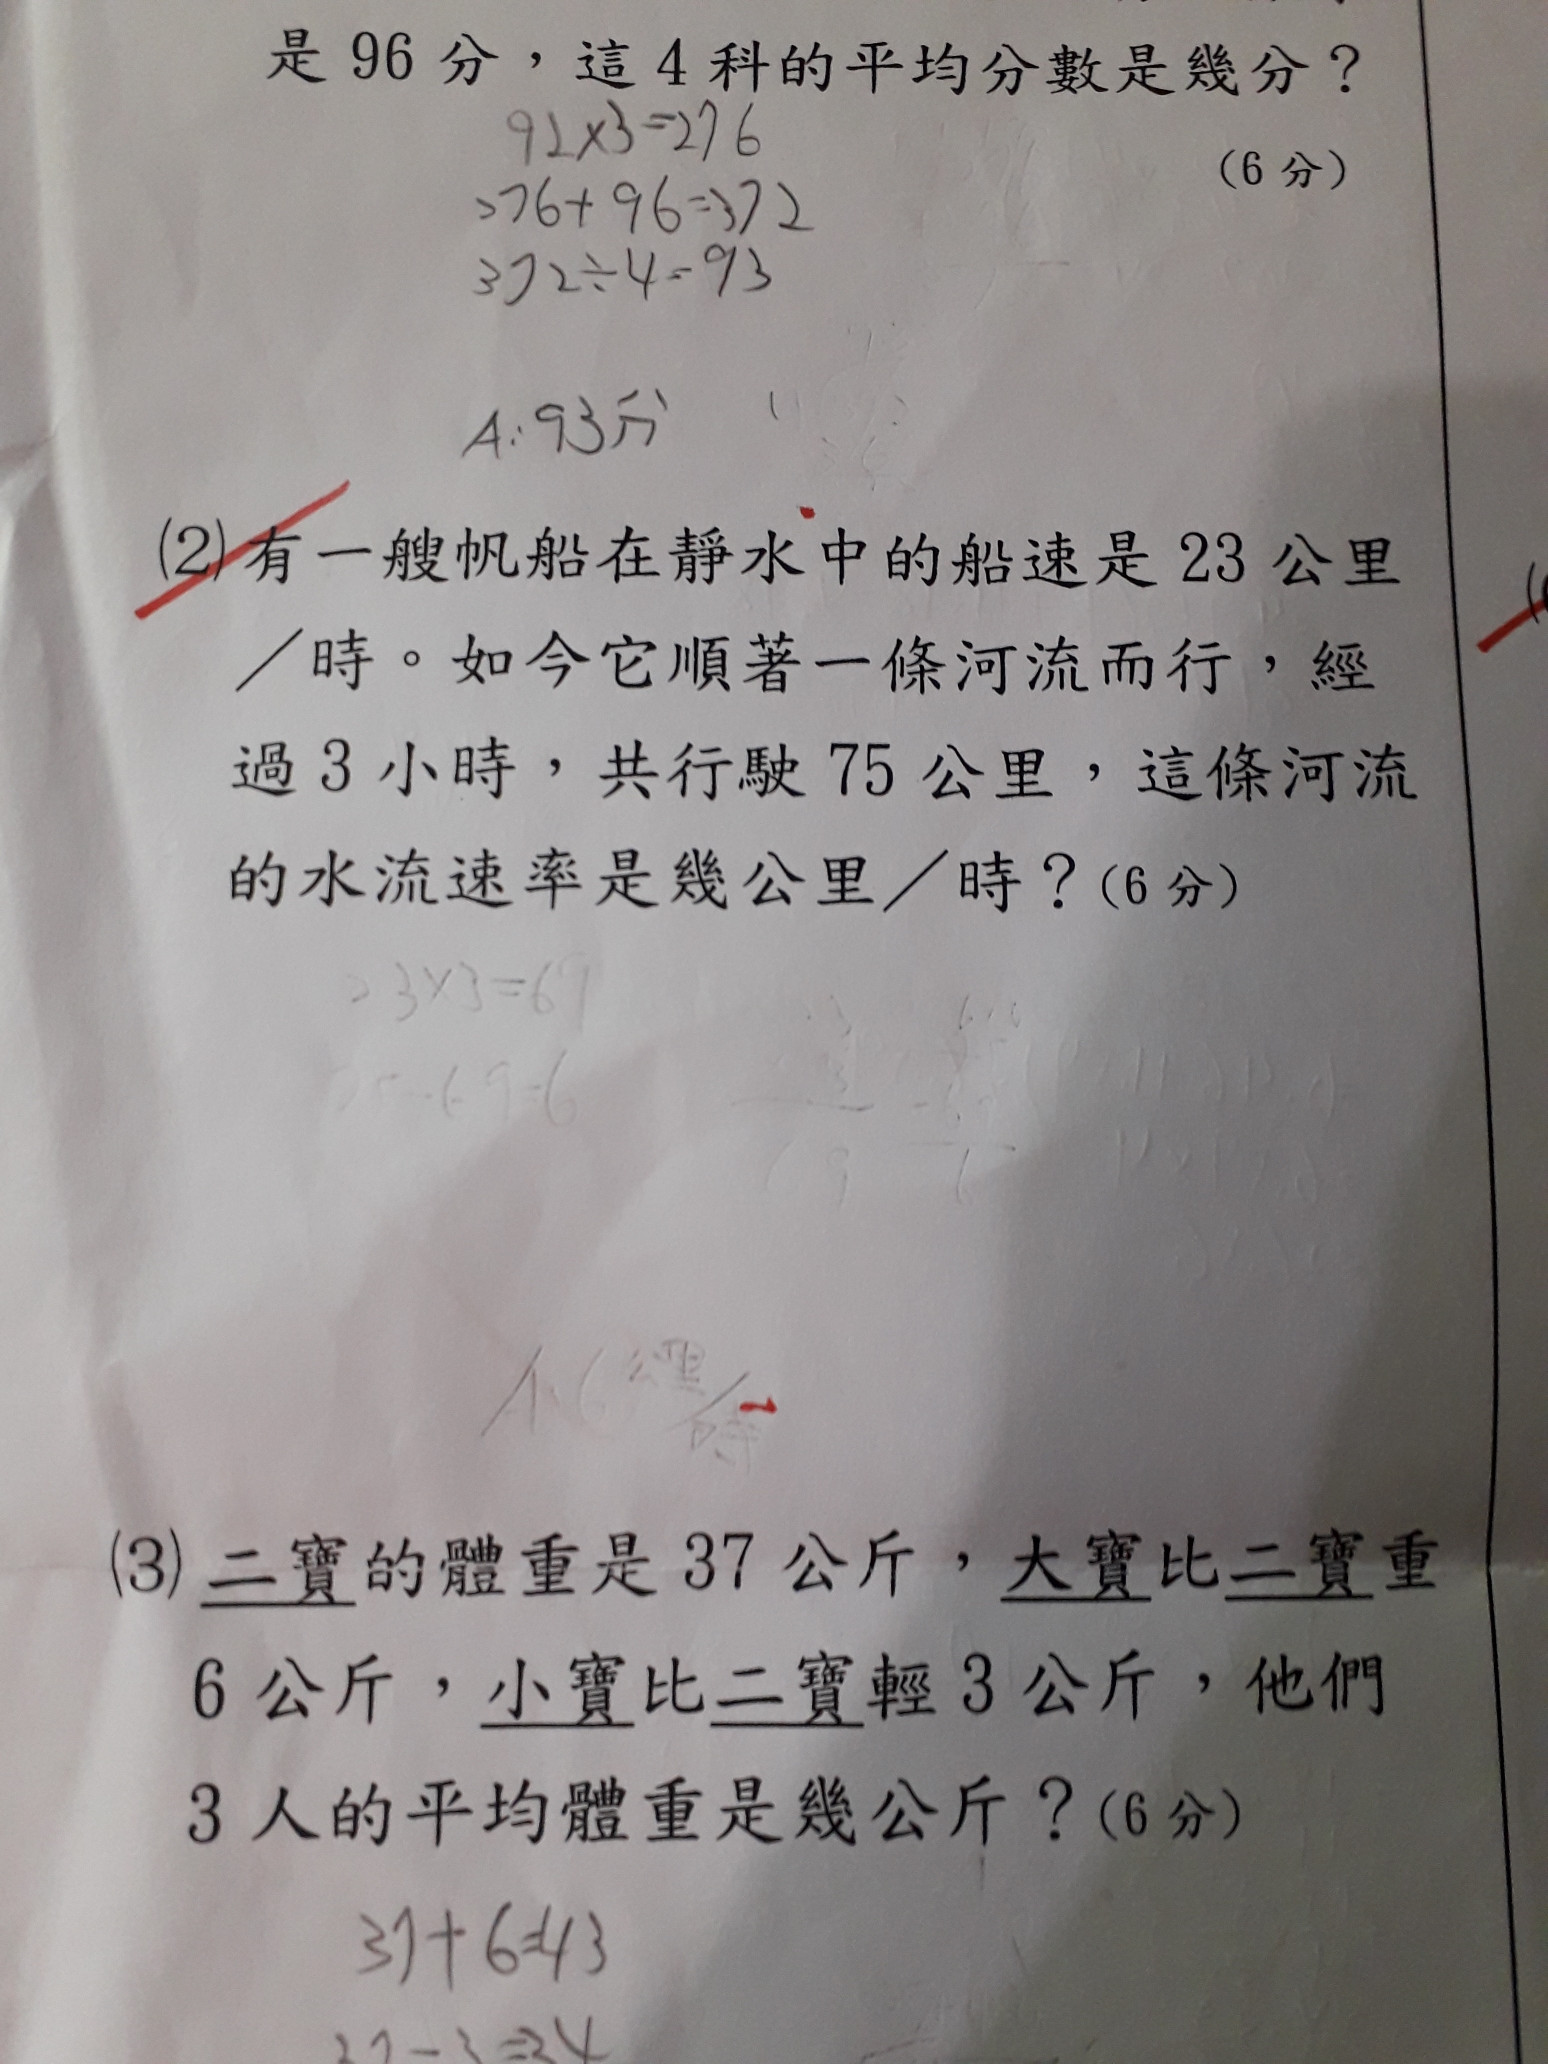 是 96 分，這 4 科的平均分數是幾分？
92×3=276
（6 分）
276+96=372
372÷4=93
A:93分
(2) 有一艘帆船在靜水中的船速是 23 公里
／時。如今它順著一條河流而行，經
過 3 小時，共行駛 75 公里，這條河流
的水流速率是幾公里／時？（6 分）
23×3=69
75-69=6
A:6公里/時
(3) 二寶的體重是 37 公斤，大寶比二寶重
6 公斤，小寶比二寶輕 3 公斤，他們
3 人的平均體重是幾公斤？（6 分）
37+6=43
37-3=34